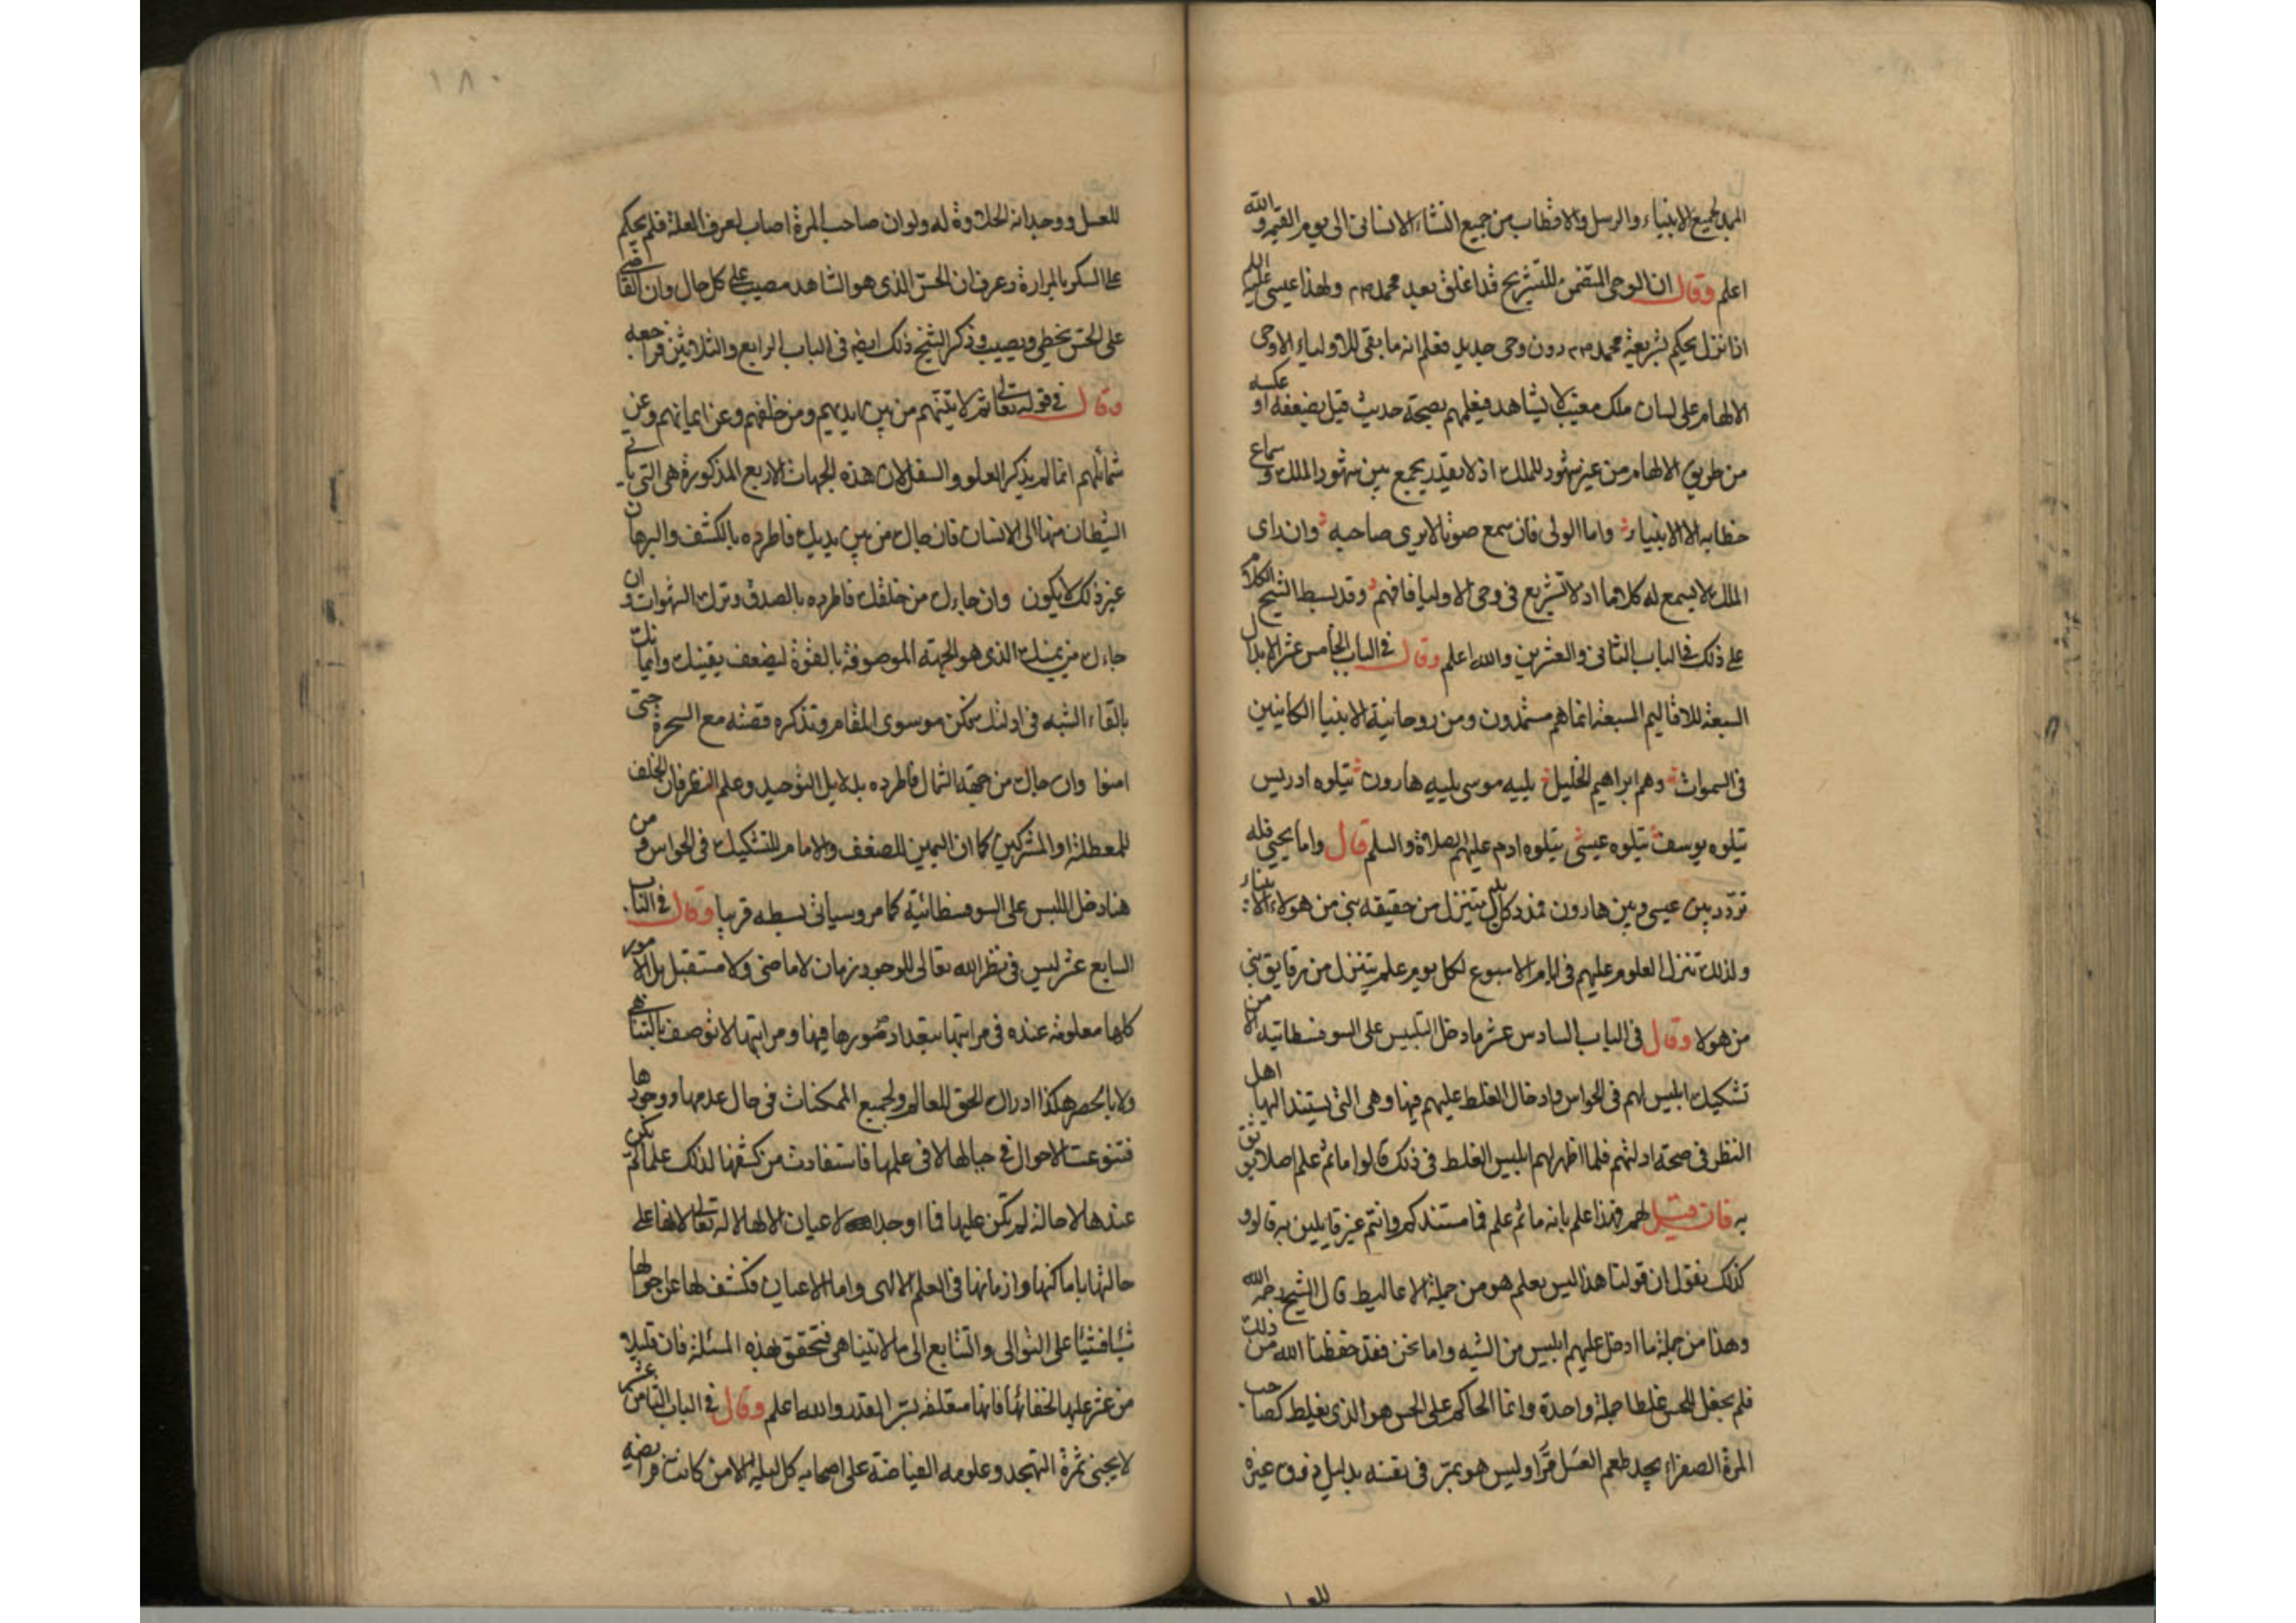 الممد لجميع الانبياء والرسل والاقطاب من جميع النشاء الانسانى الى يوم القيمة والله
اعلم وقال ان الوحى المتضمن للتشريح قد اغلق بعد محمد صلم ولهذا عيسى عليه السلم
اذا نزل يحكم بشريعة محمد صلم دون وحى جديد فعلم انه ما بقى للاولياء الا وحى
الالهام على لسان ملك مغيب لا يشاهد فيعلمهم بصحة حديث قيل بضعفه او عكسه
من طريق الالهام من غير شهود للملك اذ لا يقدر يجمع بين شهود الملك وسماع
خطابه الا الانبياء واما الولى فان سمع صوتا لا يرى صاحبه وان راى
الملك لا يسمع له كلاما اذ لا تشريع فى وحى الاوليا فافهم وقد بسط الشيخ الكلام
على ذلك فى الباب الثانى والعشرين والله اعلم وقال فى الباب الخامس عشر الابدال
السبعة للاقاليم السبعة انما هم مستمدون ومن روحانية الانبيا الكاينين
فى السموات وهم ابراهيم الخليل يليه موسى يليه هارون يتلوه ادريس
يتلوه يوسف يتلوه عيسى يتلوه ادم عليهم الصلاة والسلم قال واما يحيى فله
تردد بين عيسى وبين هارون فرد كل بدل يتنزل من حقيقه نبى من هولاء الانبياء
ولذلك تنزل العلوم عليهم فى ايام الاسبوع لكل يوم علم يتنزل من رقايق نبى
من هولا وقال فى الباب السادس عشر ما دخل التلبيس على السوفسطائيه الا من
تشكيك ابليس لهم فى الحواس وادخال الغلط عليهم فيها وهى التى يستند اليها اهل
النظر فى صحة ادلتهم فلما اظهر لهم ابليس الغلط فى ذلك قالوا ما ثم علم اصلا يوثق
به فان قيل لهم فهذا علم بانه ما ثم علم فما مستندكم وانتم غير قايلين به قالوا
كذلك نقول ان قولنا هذا ليس بعلم هو من جملة الاغاليط قال الشيخ رحمه الله
وهذا من جملة ما ادخل عليهم ابليس من الشبه واما نحن فقد حفظنا الله من ذلك
فلم يجعل للحس غلطا جملة واحدة وانما الحاكم على الحس هو الذى يغلط كصاحب
المرة الصفراء يجد طعم العسل مرا وليس هو بمر فى نفسه بدليل ذوق غيره
للعسل
للعسل ووجدانه الحلاوة له ولو ان صاحب المرة اصاب لعرف العلة فلم يحكم
على السكر بالمرارة وعرف ان الحس الذى هو الشاهد مصيب على كل حال وان القاضى
على الحس يخطى ويصيب وذكر الشيخ ذلك ايضا فى الباب الرابع والثلاثين فراجعه
وقال فى قوله تعالى ثم لاتينهم من بين ايديهم ومن خلفهم وعن ايمانهم وعن
شمائلهم انما لم يذكر العلو والسفل لان هذه الجهات الاربع المذكورة هى التى ياتى
الشيطان منها الى الانسان فان جاءك من بين يديك فاطرده بالكشف والبرهان
غير ذلك لا يكون وان جاءك من خلفك فاطرده بالصدق وترك الشهوات وان
جاءك من يمينك الذى هو الجهة الموصوفة بالقوة ليضعف يقينك وايمانك
بالقاء الشبه فى ادلتك فكن موسوى المقام وتذكره قصته مع السحرة حتى
امنوا وان جاءك من جهة الشمال فاطرده بدلايل التوحيد وعلم النظر فان الخلف
للمعطلة او المشركين كما ان اليمين للضعف والامام للتشكيك فى الحواس ومن
هنا دخل اللبس على السوفسطائية كما مر وسياتى بسطه قريبا وقال فى الباب
السابع عشر ليس فى نظر الله تعالى للوجود زمان لا ماضى ولا مستقبل بل الامور
كلها معلومة عنده فى مراتبها بتعداد صورها فيها ومراتبها لا توصف بالتناهى
ولا بالحصر هكذا ادراك الحق للعالم ولجميع الممكنات فى حال عدمها ووجودها
فتنوعت الاحوال فى خيالها لا فى علمها فاستفادت من كشفها لذلك علما لم يكن
عندها لا حالة لم تكن عليها فما اوجد الاعيان الا لها لا له تعالى لانها على
حالتها باماكنها وازمانها فى العلم الالهى واما الاعيان فكشف لها عن احوالها
شيا فشيا على التوالى والتتابع الى ما لا يتناهى فتحقق بهذه المسئلة فان قليلا
من عثر عليها لخفائها فانها متعلقه بسر القدر والله اعلم وقال فى الباب الثامن عشر
لا يجنى ثمرة التهجد وعلومه الفياضة على اصحابه كل ليلة الا من كانت فرائضه
١٨٠